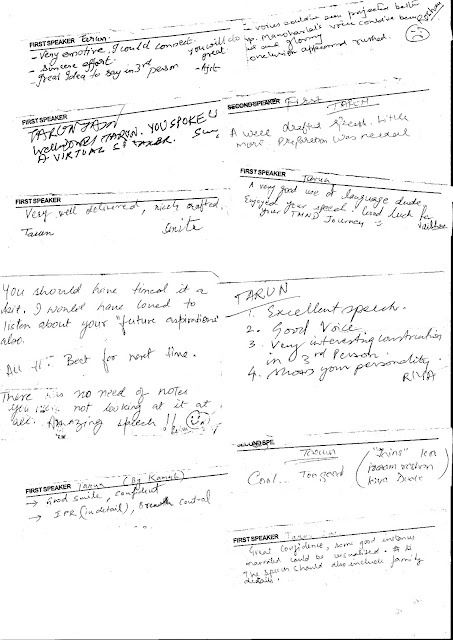 FIRST SPEAKER Tarun
- Very emotive, I could connect
- Sincere effort.
- Great Idea to say in 3rd person
you will do great
- Ajit
voice could be been
conclusion appeared rushed.
FIRST SPEAKER
TARUN JAIN
Well done! TARUN. YOU SPOKE
A VIRTUAL
SECOND SPEAKER First TARUN
A well drafted speech. Little
more preparation was needed
FIRST SPEAKER Tarun
A very good use of language dude
Enjoyed your speech. Good luck for
your TMND Journey :)
Vaibhav
FIRST SPEAKER
Very well delivered, nicely crafted.
Tarun Smita
You should have timed it a
bit. I would have loved to
listen about your "future aspirations"
also.
All the Best for next time.
There was no need of notes
you were not looking at it at
all. Amazing speech!!
TARUN
1. Excellent speech.
2. Good Voice.
3. Very interesting construction
in 3rd Person.
4. Shows your personality.
RIYA
SPE
Tarun
Cool... Too good
FIRST SPEAKER Tarun (By Kamal)
→ Good smile, confident
→ IPR (in detail), Breath control
FIRST SPEAKER Tarun
Great Confidence, some good instances
narrated could be visualised.
The speech should also include family
details.